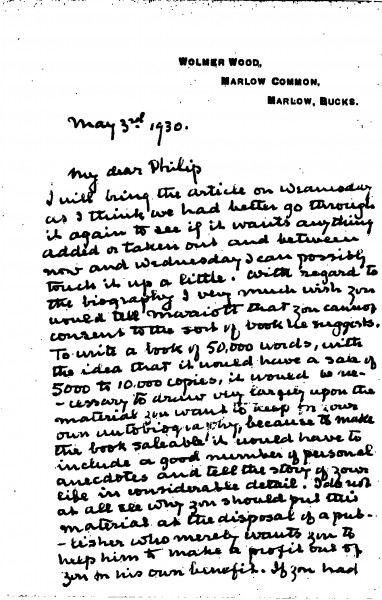 WOLMER WOOD,
MARLOW COMMON,
MARLOW, BUCKS.
May 3rd 1930.
My dear Philip
I will bring the article on Wednesday
as I think we had better go through
it again to see if it wants anything
added or taken out and between
now and Wednesday I can possibly
touch it up a little. With regard to
the biography I very much wish you
would tell Marriott that you cannot
consent to the sort of book he suggests.
To write a book of 50,000 words, with
the idea that it would have a sale of
5000 to 10.000 copies, it would be ne-
-cessary to draw very largely upon the
material you want to keep for your
own autobiography, because to make
the book saleable it would have to
include a good number of personal
anecdotes and tell the story of your
life in considerable detail. I do not
at all see why you should put this
material at the disposal of a pub-
-lisher who merely wants you to
help him to make a profit out of
you for his own benefit. If you had